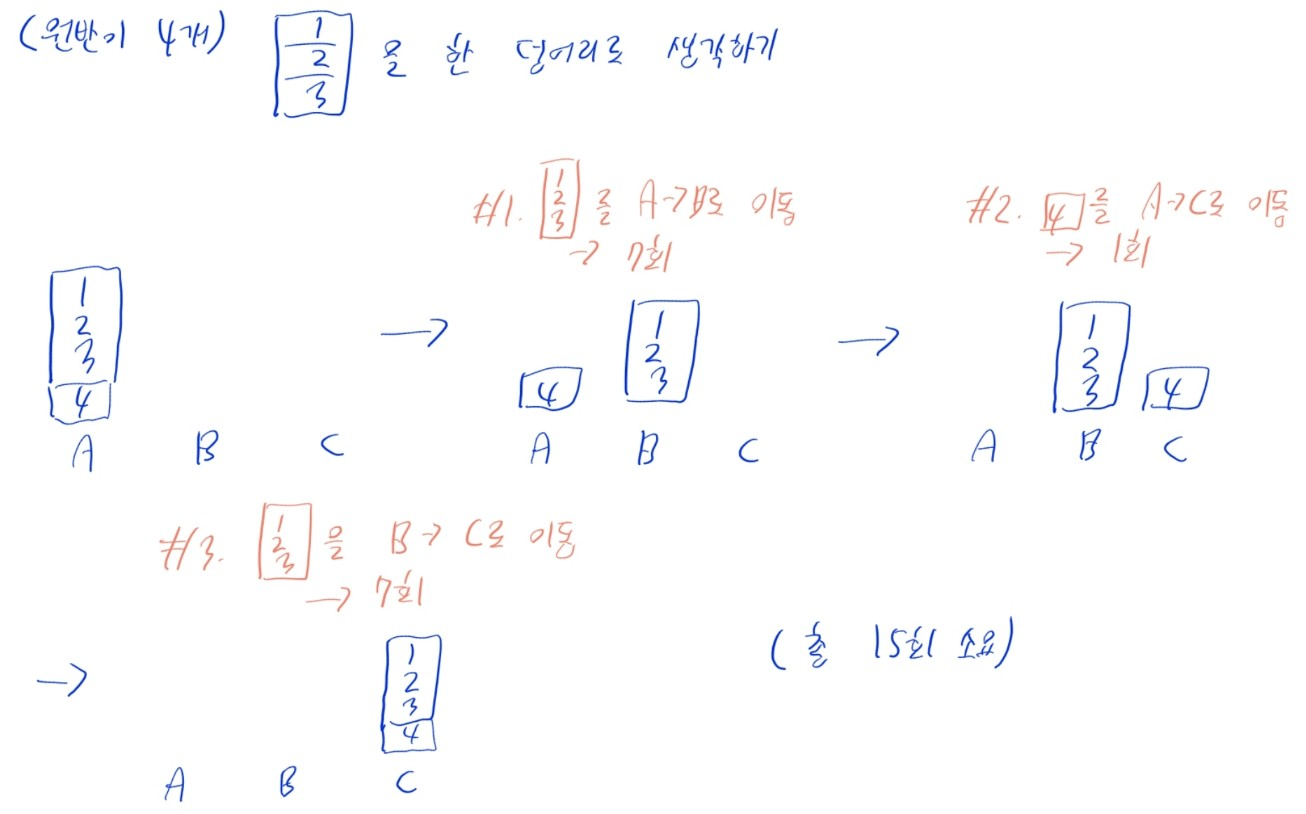 (원반이 4개) 1 2 3 을 한 덩어리로 생각하기
#1. 1 2 3 를 A→B로 이동
→ 7회
#2. 4 를 A→C로 이동
→ 1회
1
2
3
4
A B C
→
1
2
3
4
A B C
→
1
2
3
4
A B C
#3. 1 2 3 을 B→C로 이동
→ 7회
→
1
2
3
4
A B C
(총 15회 소요)